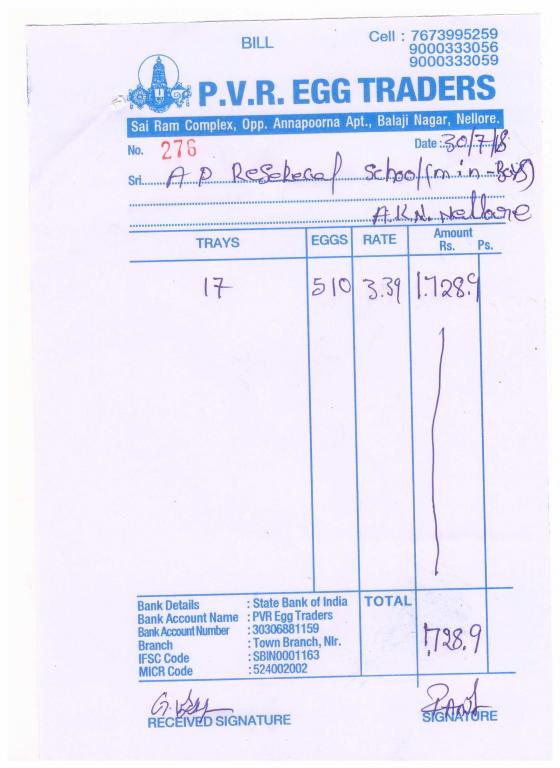 BILL
Cell : 7673995259
9000333056
9000333059
P.V.R. EGG TRADERS
Sai Ram Complex, Opp. Annapoorna Apt., Balaji Nagar, Nellore.
No. 276 Date : 30/7/18
Sri. A P Resedenal School (min-Boys)
A.K.N. Nellore
TRAYS EGGS RATE Amount Rs. Ps.
17 510 3.39 1.728.9
Bank Details : State Bank of India TOTAL
Bank Account Name : PVR Egg Traders
Bank Account Number : 30306881159 1728.9
Branch : Town Branch, Nlr.
IFSC Code : SBIN0001163
MICR Code : 524002002
RECEIVED SIGNATURE SIGNATURE